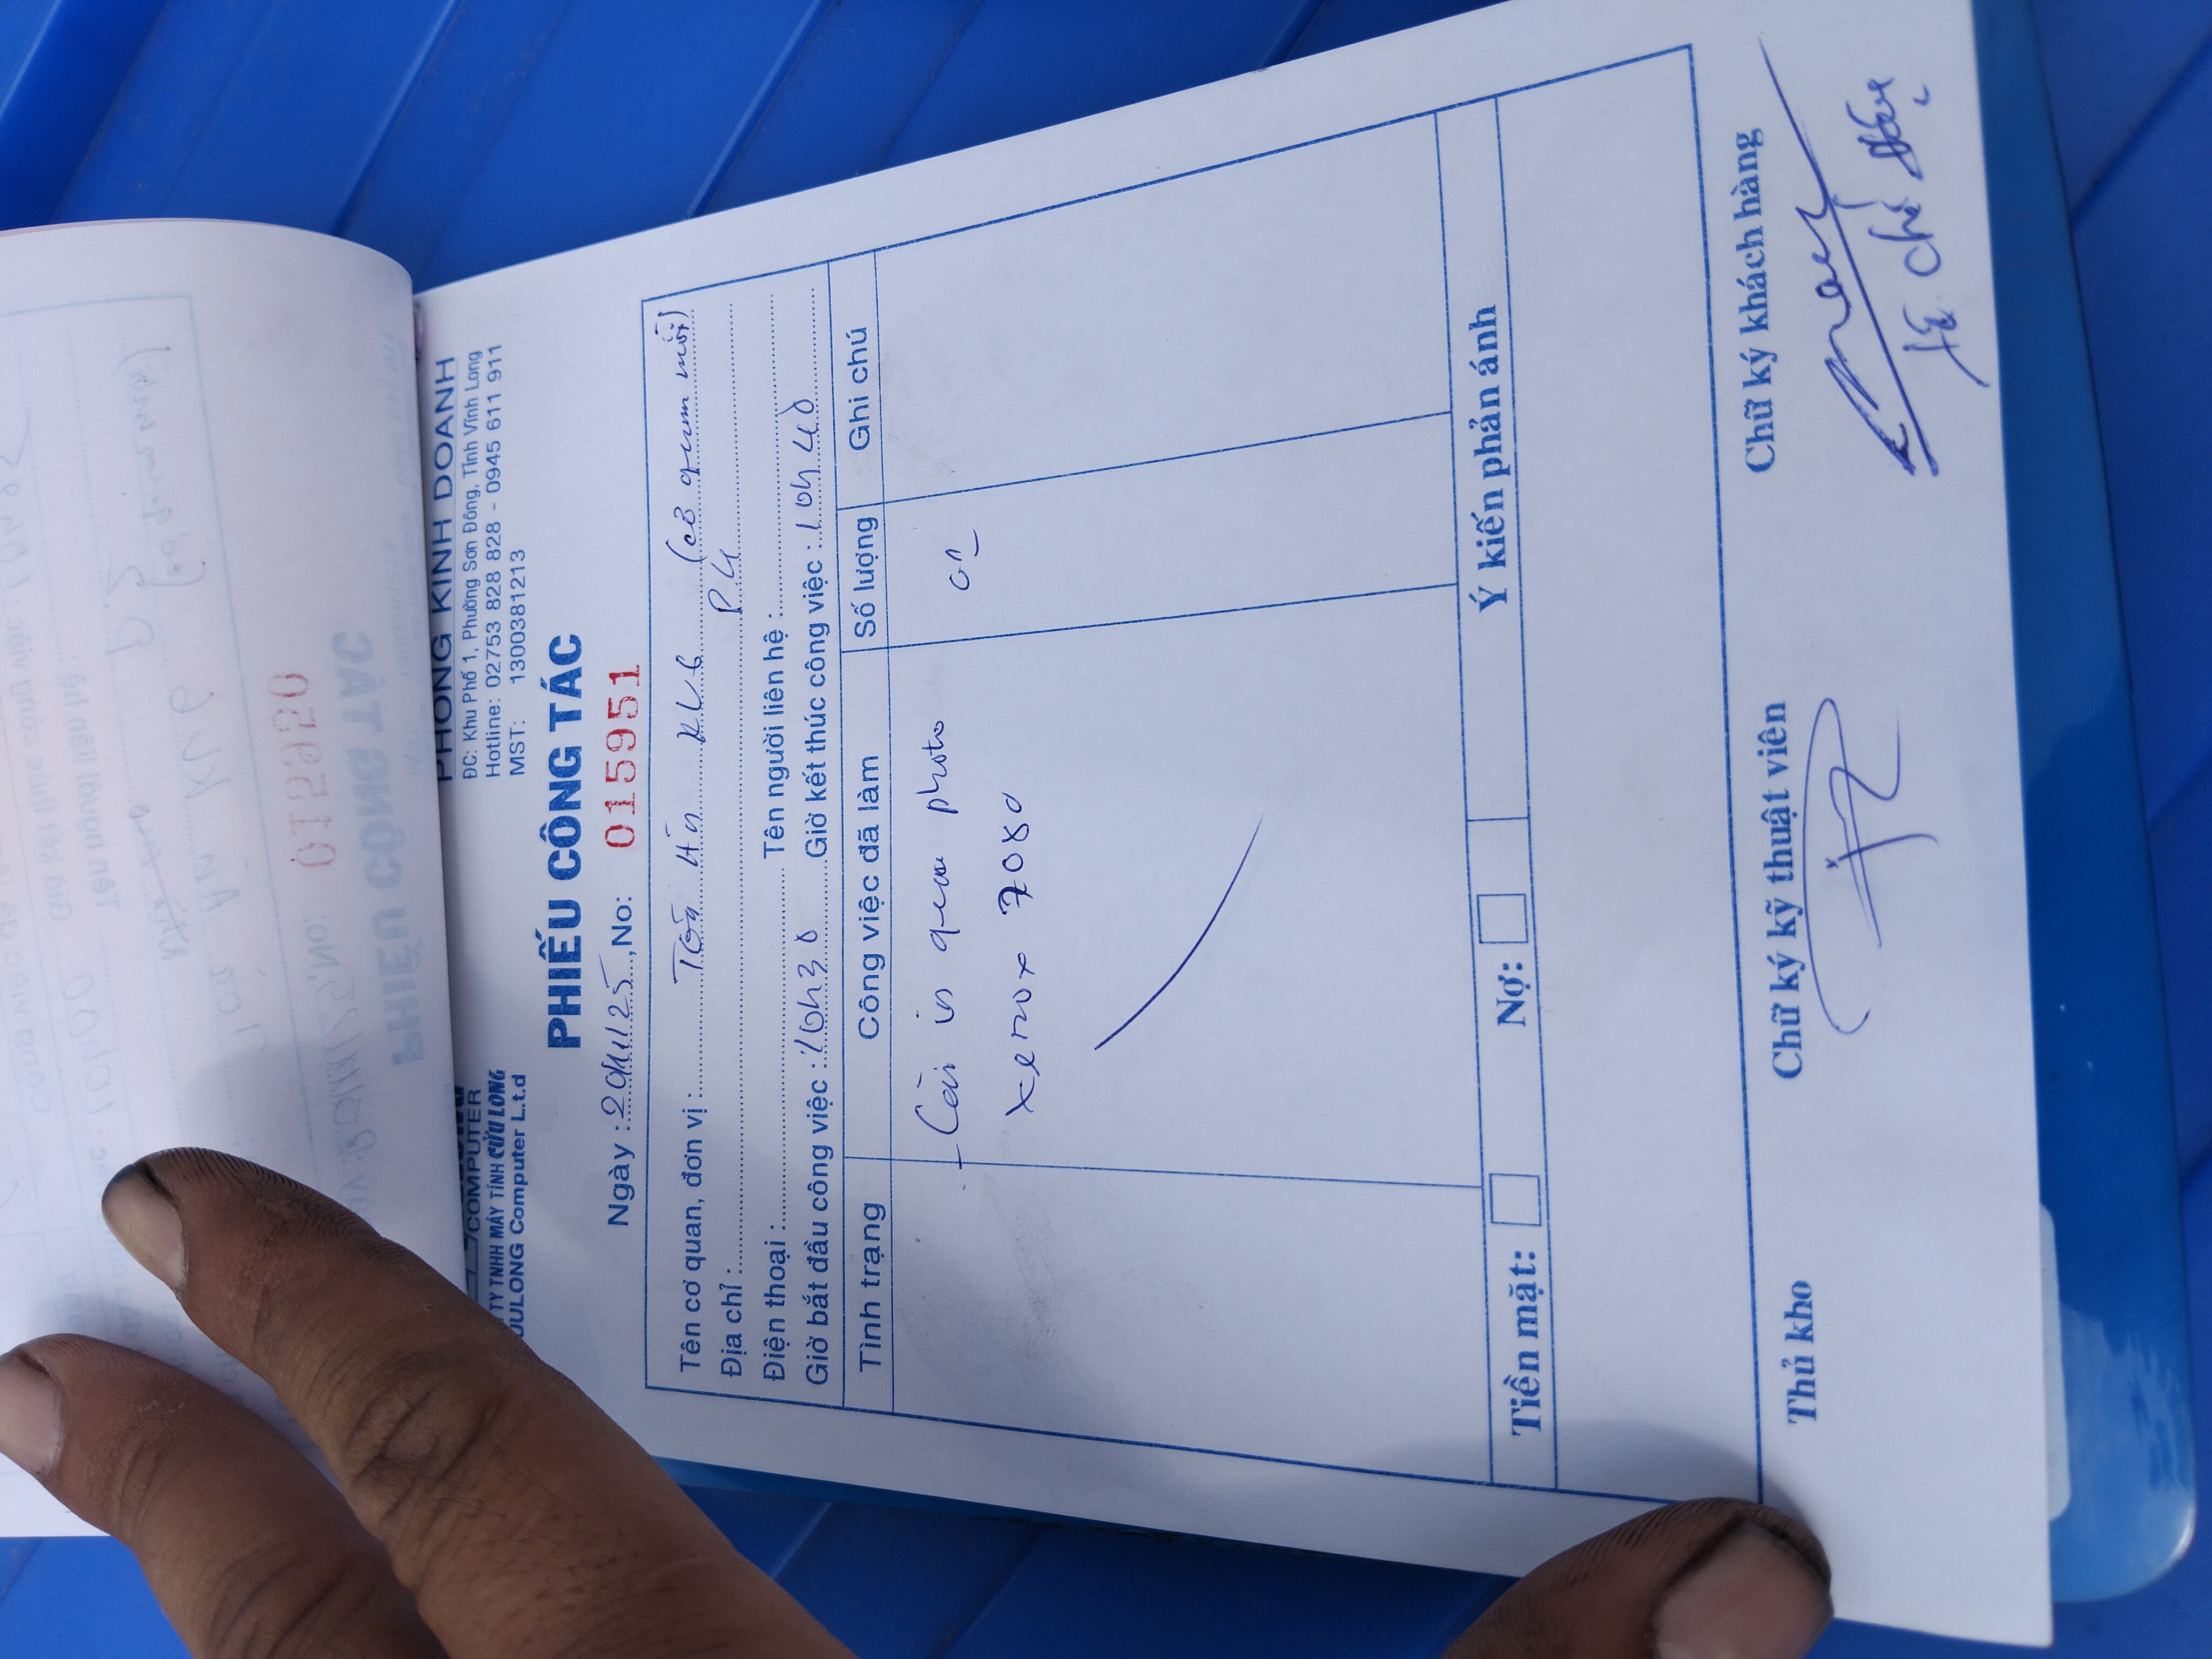 COMPUTER
TY TNHH MÁY TÍNH CỬU LONG
UULONG Computer L.t.d
PHÒNG KINH DOANH
ĐC: Khu Phố 1, Phường Sơn Đông, Tỉnh Vĩnh Long
Hotline: 02753 828 828 - 0945 611 911
MST: 1300381213
PHIẾU CÔNG TÁC
Ngày : 29/11/25, No: 015951
Tên cơ quan, đơn vị : Tòa án KV6
Địa chỉ : P4
Điện thoại : Tên người liên hệ :
Giờ bắt đầu công việc : 10h30 Giờ kết thúc công việc : 10h40
Tình trạng Công việc đã làm Số lượng Ghi chú
- Cài in qua photo
xerox 7080
Tiền mặt: Nợ: Ý kiến phản ánh
Thủ kho Chữ ký kỹ thuật viên Chữ ký khách hàng
015950